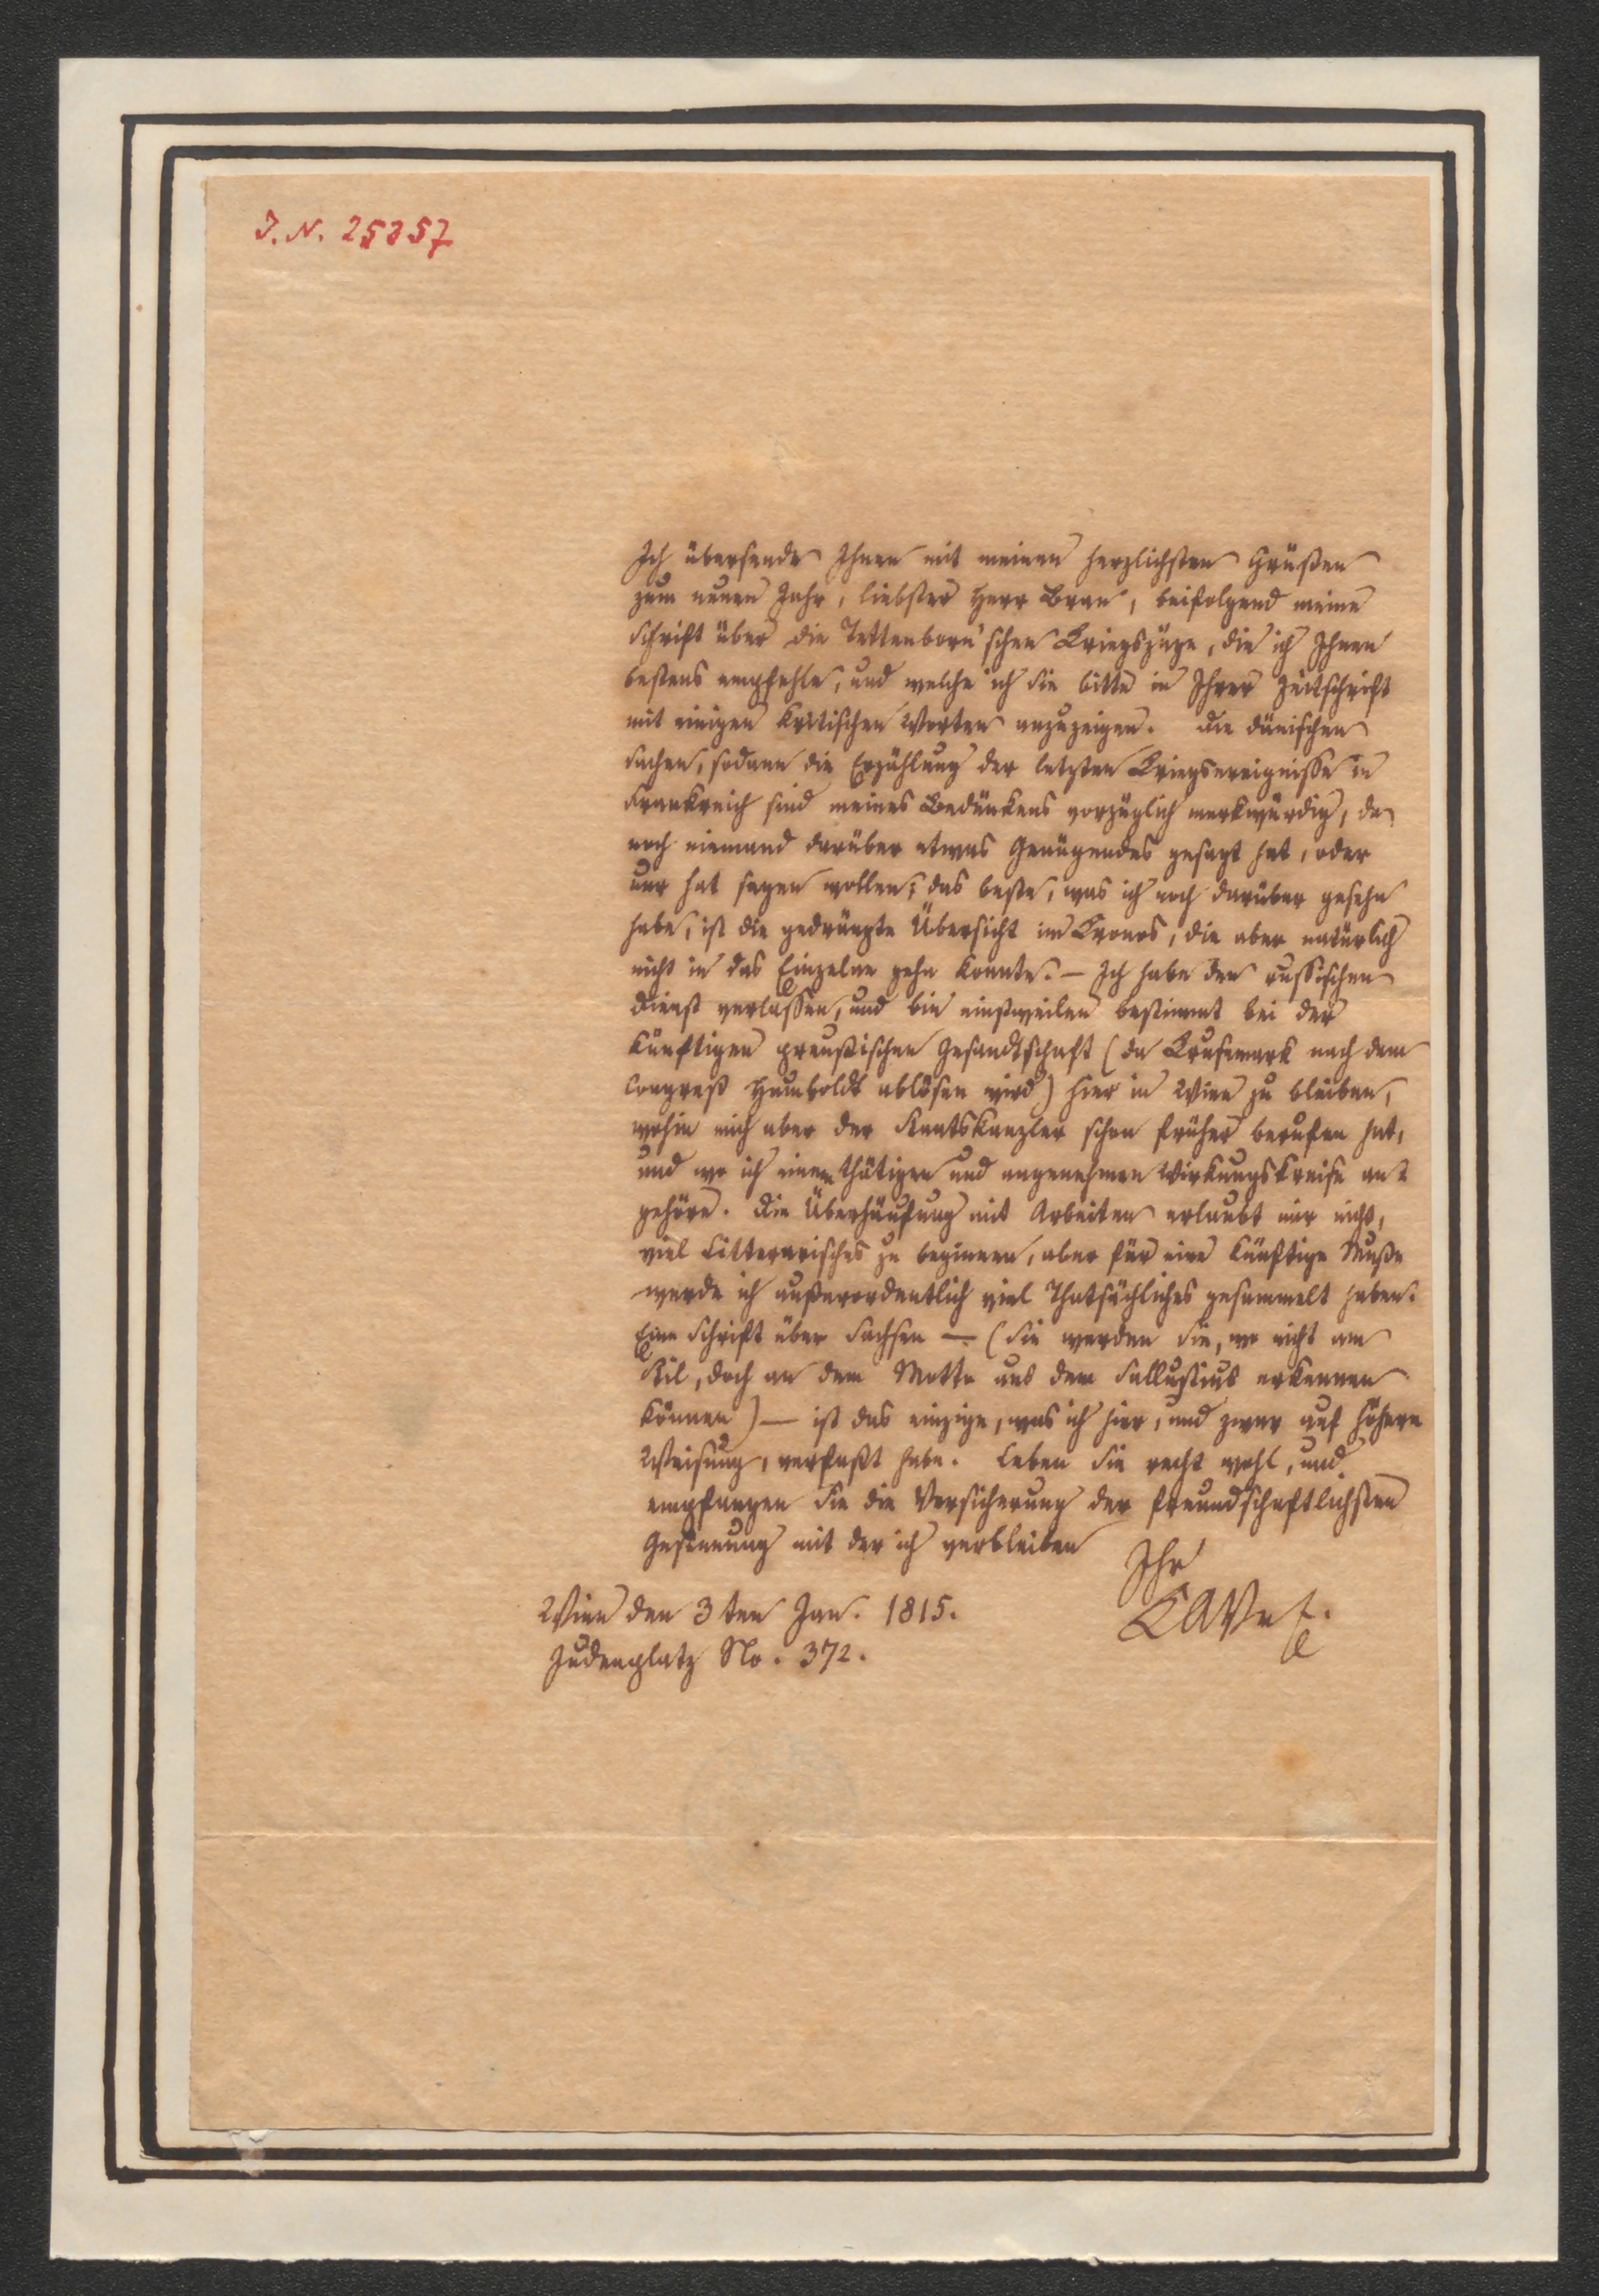 J. N. 25857
Ich übersende Ihnen mit meinen herzlichsten Grüßen
zum neuen Jahr, liebster Herr Bran, beifolgend meine
Schrift über die Tettenborn'schen Kriegszüge, die ich Ihnen
bestens empfehle, und welche ich Sie bitte in Ihrer Zeitschrift
mit einigen kritischen Worten anzuzeigen. Die dänischen
Sachen, sodann die Erzählung der letzten Kriegsereignisse in
Frankreich sind meines Bedünkens vorzüglich merkwürdig, da
noch niemand darüber etwas Genügendes gesagt hat, oder
nur hat sagen wollen; das beste, was ich noch darüber gesehn
habe, ist die gedrängte Übersicht im Kronos, die aber natürlich
nicht in das Einzelne gehn konnte. – Ich habe den russischen
Dienst verlassen, und bin einstweilen bestimmt bei der
künftigen preußischen Gesandtschaft (da Krusemark nach dem
Congreß Humboldt ablösen wird) hier in Wien zu bleiben,
wohin mich aber der Staatskanzler schon früher berufen hat,
und wo ich einem thätigen und angenehmen Wirkungskreise an-
gehöre. Die Überhäufung mit Arbeiten erlaubt mir nicht,
viel Litterarisches zu beginnen, aber für eine künftige Muße
werde ich außerordentlich viel Thatsächliches gesammelt haben.
Eine Schrift über Sachsen – (Sie werden sie, wo nicht am
Stil, doch an dem Motto aus dem Sallustius erkennen
können) – ist das einzige, was ich hier, und zwar auf höhere
Weisung, verfaßt habe. Leben Sie recht wohl, und
empfangen Sie die Versicherung der freundschaftlichsten
Gesinnung mit der ich verbleibe
Ihr
KAVE.
Wien den 3ten Jan. 1815.
Judenplatz No. 372.